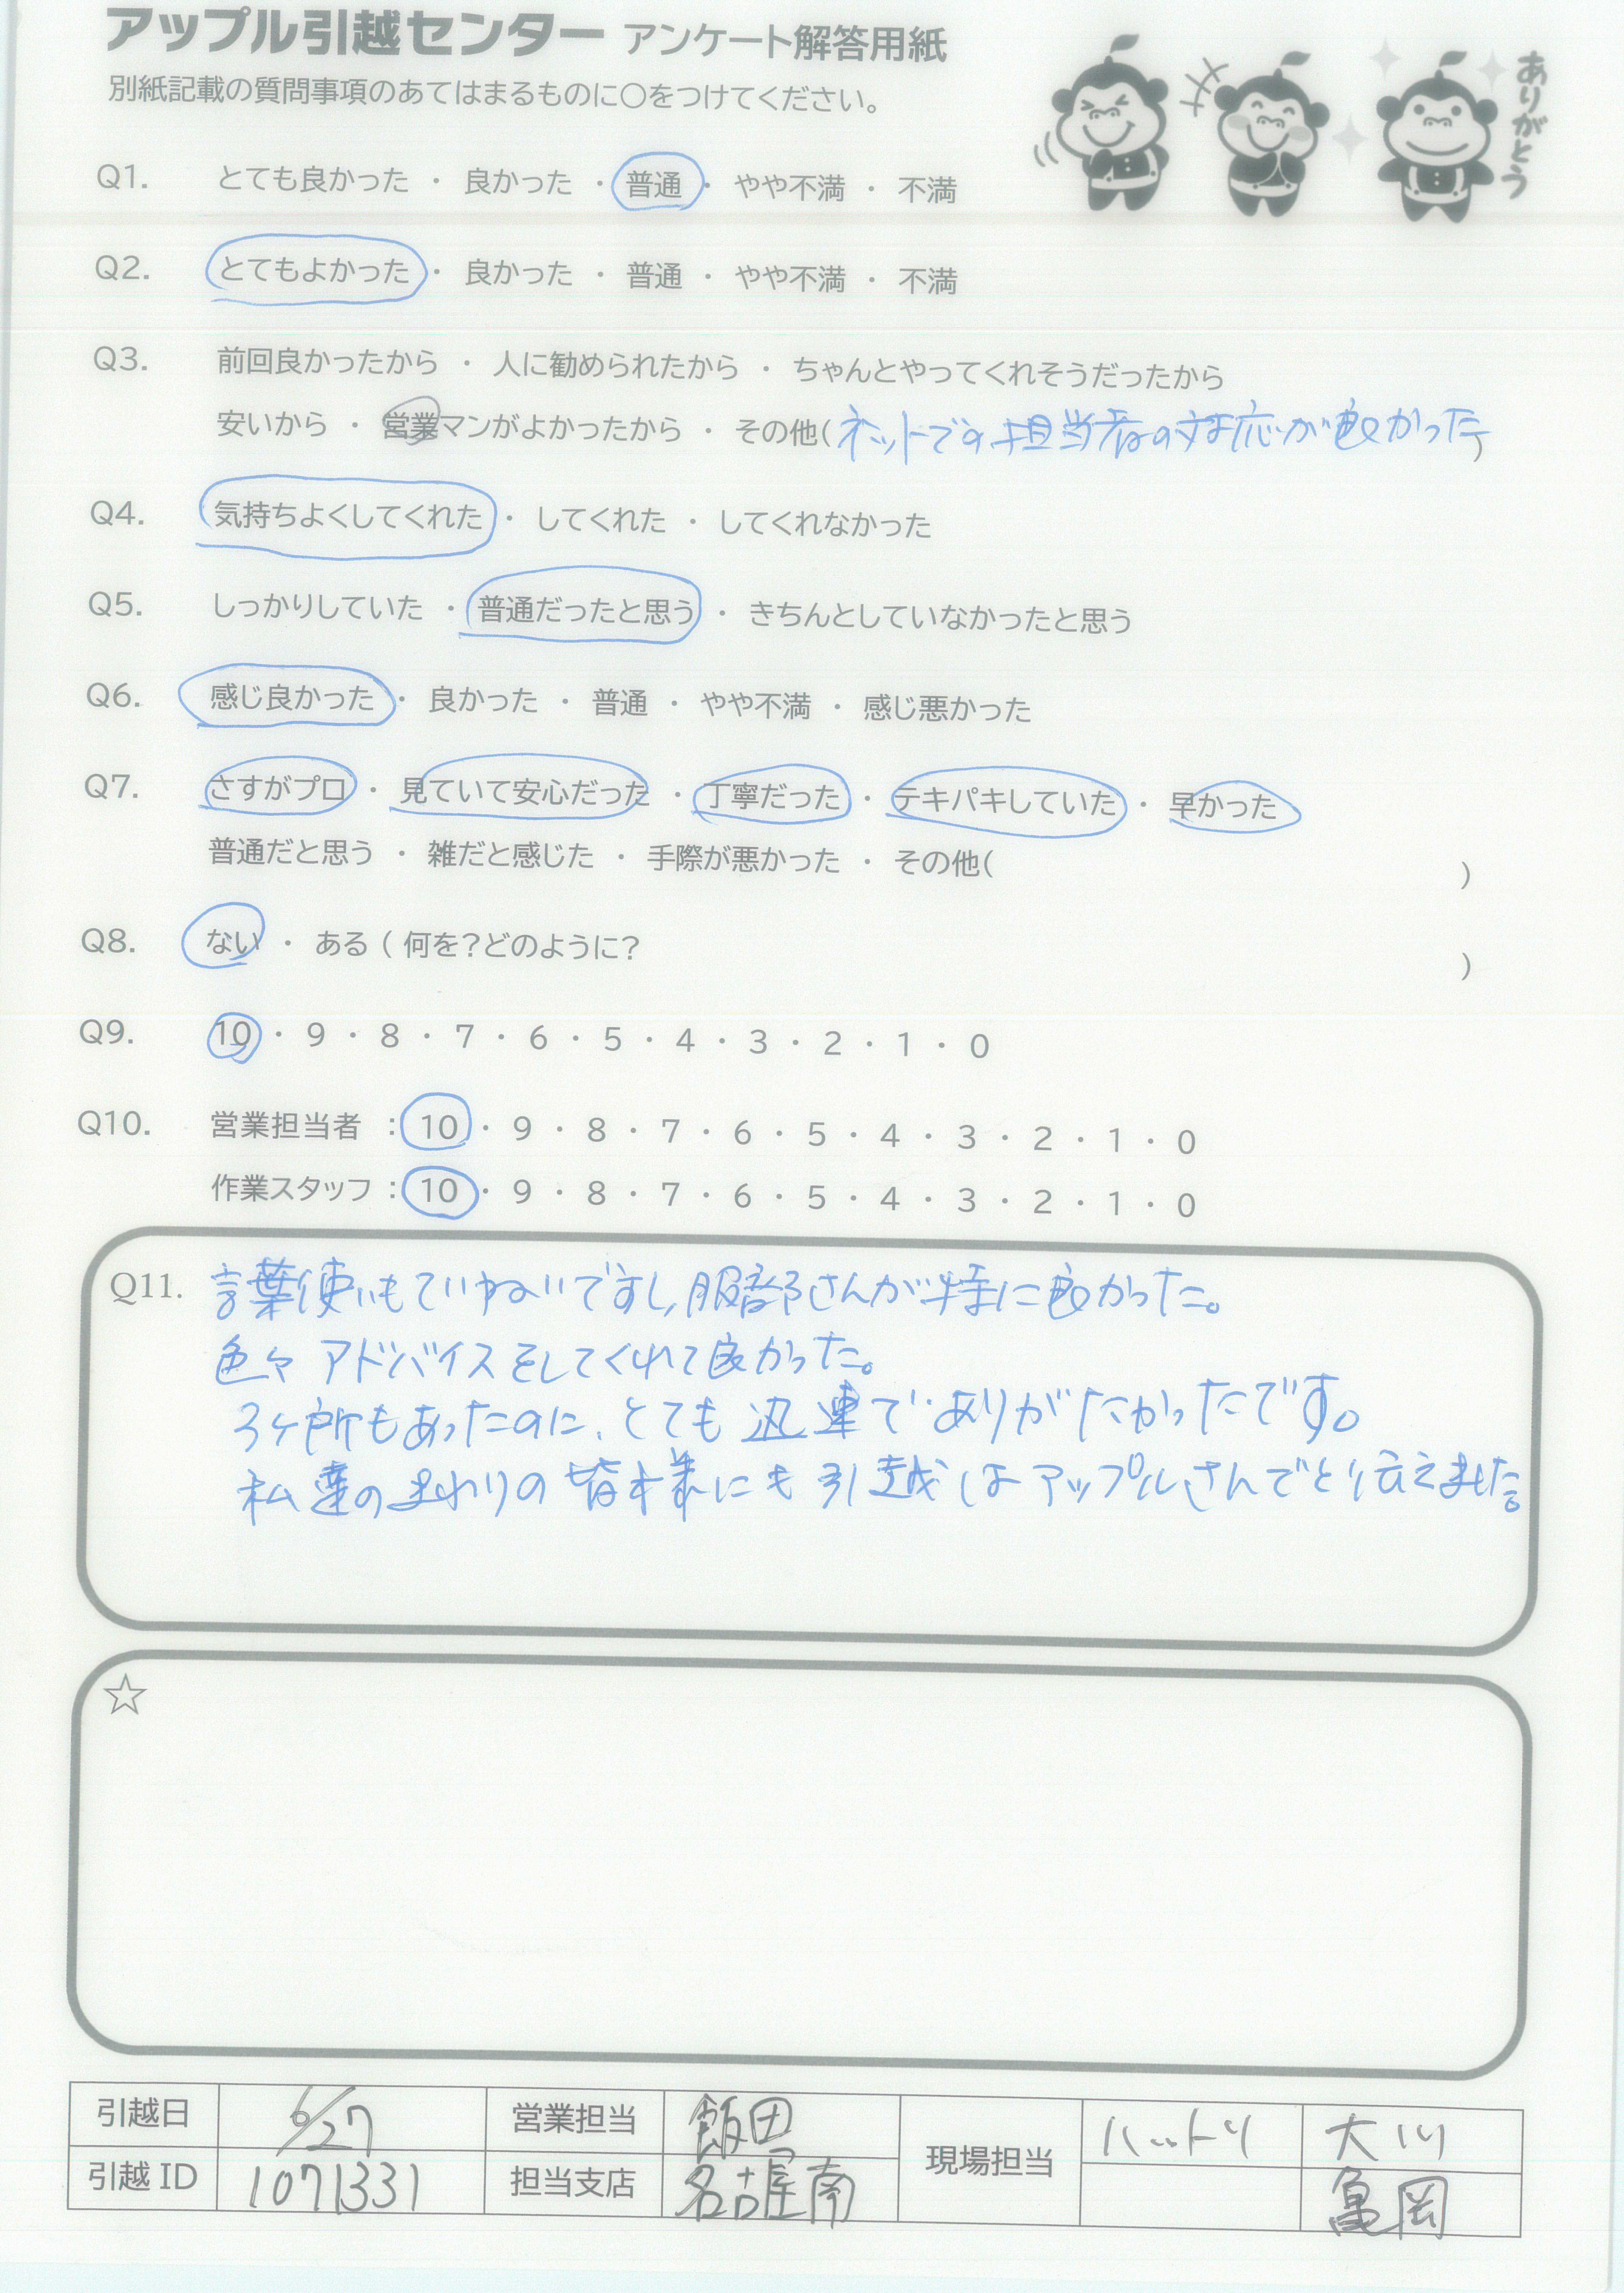 アップル引越センター アンケート解答用紙
別紙記載の質問事項のあてはまるものに○をつけてください。
ありがとう
Q1. とても良かった ・ 良かった ・ 普通 ・ やや不満 ・ 不満
Q2. とてもよかった ・ 良かった ・ 普通 ・ やや不満 ・ 不満
Q3. 前回良かったから ・ 人に勧められたから ・ ちゃんとやってくれそうだったから
安いから ・ 営業マンがよかったから ・ その他(ネットでの担当者の対応が良かった)
Q4. 気持ちよくしてくれた ・ してくれた ・ してくれなかった
Q5. しっかりしていた ・ 普通だったと思う ・ きちんとしていなかったと思う
Q6. 感じ良かった ・ 良かった ・ 普通 ・ やや不満 ・ 感じ悪かった
Q7. さすがプロ ・ 見ていて安心だった ・ 丁寧だった ・ テキパキしていた ・ 早かった
普通だと思う ・ 雑だと感じた ・ 手際が悪かった ・ その他( )
Q8. ない ・ ある ( 何を?どのように? )
Q9. 10 ・ 9 ・ 8 ・ 7 ・ 6 ・ 5 ・ 4 ・ 3 ・ 2 ・ 1 ・ 0
Q10. 営業担当者 : 10 ・ 9 ・ 8 ・ 7 ・ 6 ・ 5 ・ 4 ・ 3 ・ 2 ・ 1 ・ 0
作業スタッフ : 10 ・ 9 ・ 8 ・ 7 ・ 6 ・ 5 ・ 4 ・ 3 ・ 2 ・ 1 ・ 0
Q11. 言葉使いもていねいですし、服部さんが特に良かった。
色々アドバイスをしてくれて良かった。
3ヶ所もあったのに、とても迅速でありがたかったです。
私達のまわりの皆様にも引越はアップルさんでと伝えました。
☆
引越日 6/27 営業担当 飯田 現場担当 ハットリ 大川
引越 ID 1071331 担当支店 名古屋南 亀岡